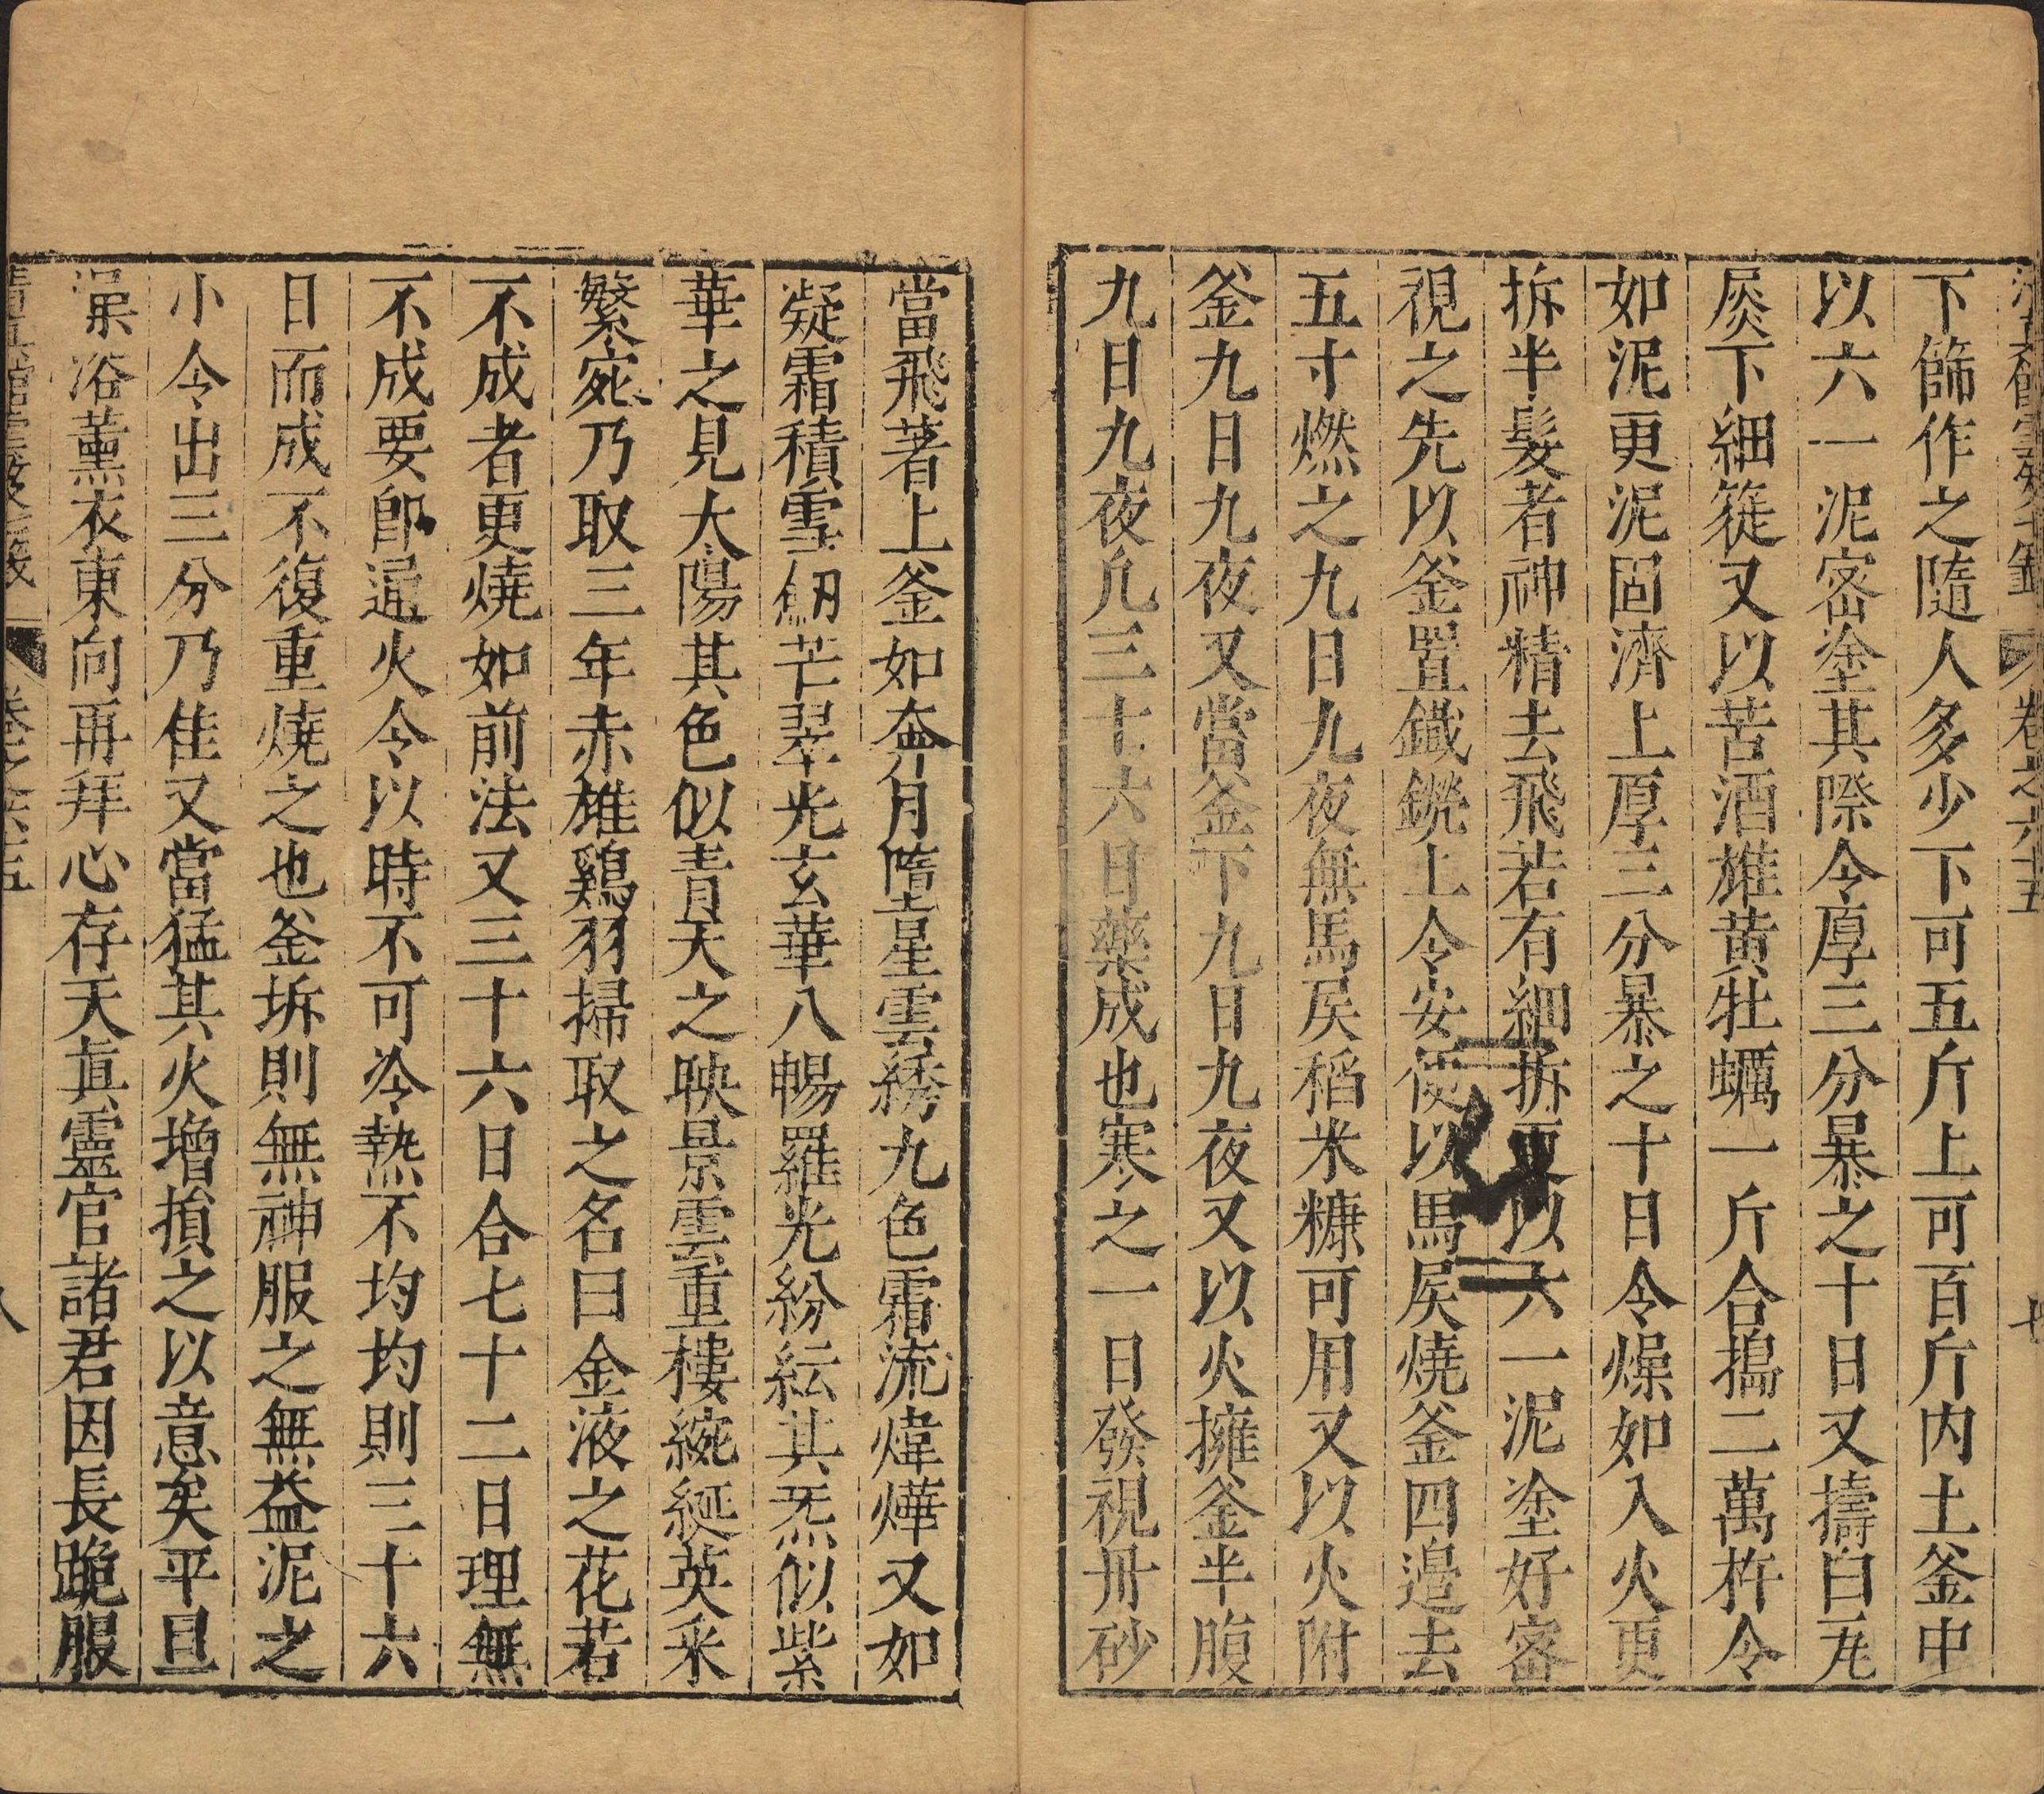 清眞舘雲笈七籖 卷之六五 七
下篩作之隨人多少下可五斤上可百斤内土釜中
以六一泥宻塗其際令厚三分暴之十日又擣白瓦
屑下細簁又以苦酒雄黄牡蠣一斤合搗二萬杵令
如泥更泥固濟上厚三分暴之十日令燥如入火更
拆半髮者神精去飛若有細拆更以六一泥塗好審
視之先以釜置鐡鐃上令安便以馬矢燒釜四邉去
五寸燃之九日九夜無馬矢稻米糠可用又以火附
釜九日九夜又當釜下九日九夜又以火擁釜半腹
九日九夜凢三十六日藥成也寒之一日發視丹砂
當飛著上釜如奔月墮星雲綉九色霜流煒燁又如
凝霜積雪劒芒翠光玄華八暢羅光紛紜其炁似紫
華之見太陽其色似青天之映景雲重樓綩綖英采
繁宛乃取三年赤雄鷄羽掃取之名曰金液之花若
不成者更燒如前法又三十六日合七十二日理無
不成要節遥火令以時不可冷熱不均均則三十六
日而成不復重燒之也釜坼則無神服之無益泥之
小令出三分乃佳又當猛其火增損之以意矣平旦
澡浴薰衣東向再拜心存天眞靈官諸君因長跪服
清眞舘雲笈七籖 卷之六五 八